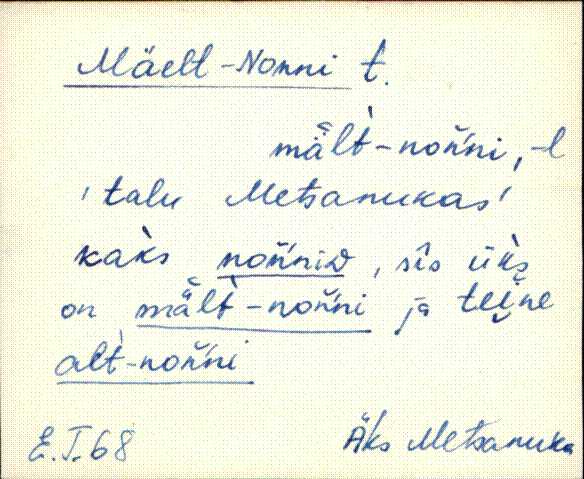 Mäelt-Nonni t.
mält̀-noň́ni, -l
'talu Metsanukas'
kaks noň́niD, sîs üks
on mält̀-noň́ni ja teine
alt̀-noň́ni
E.T.68 Äks Metsanuka